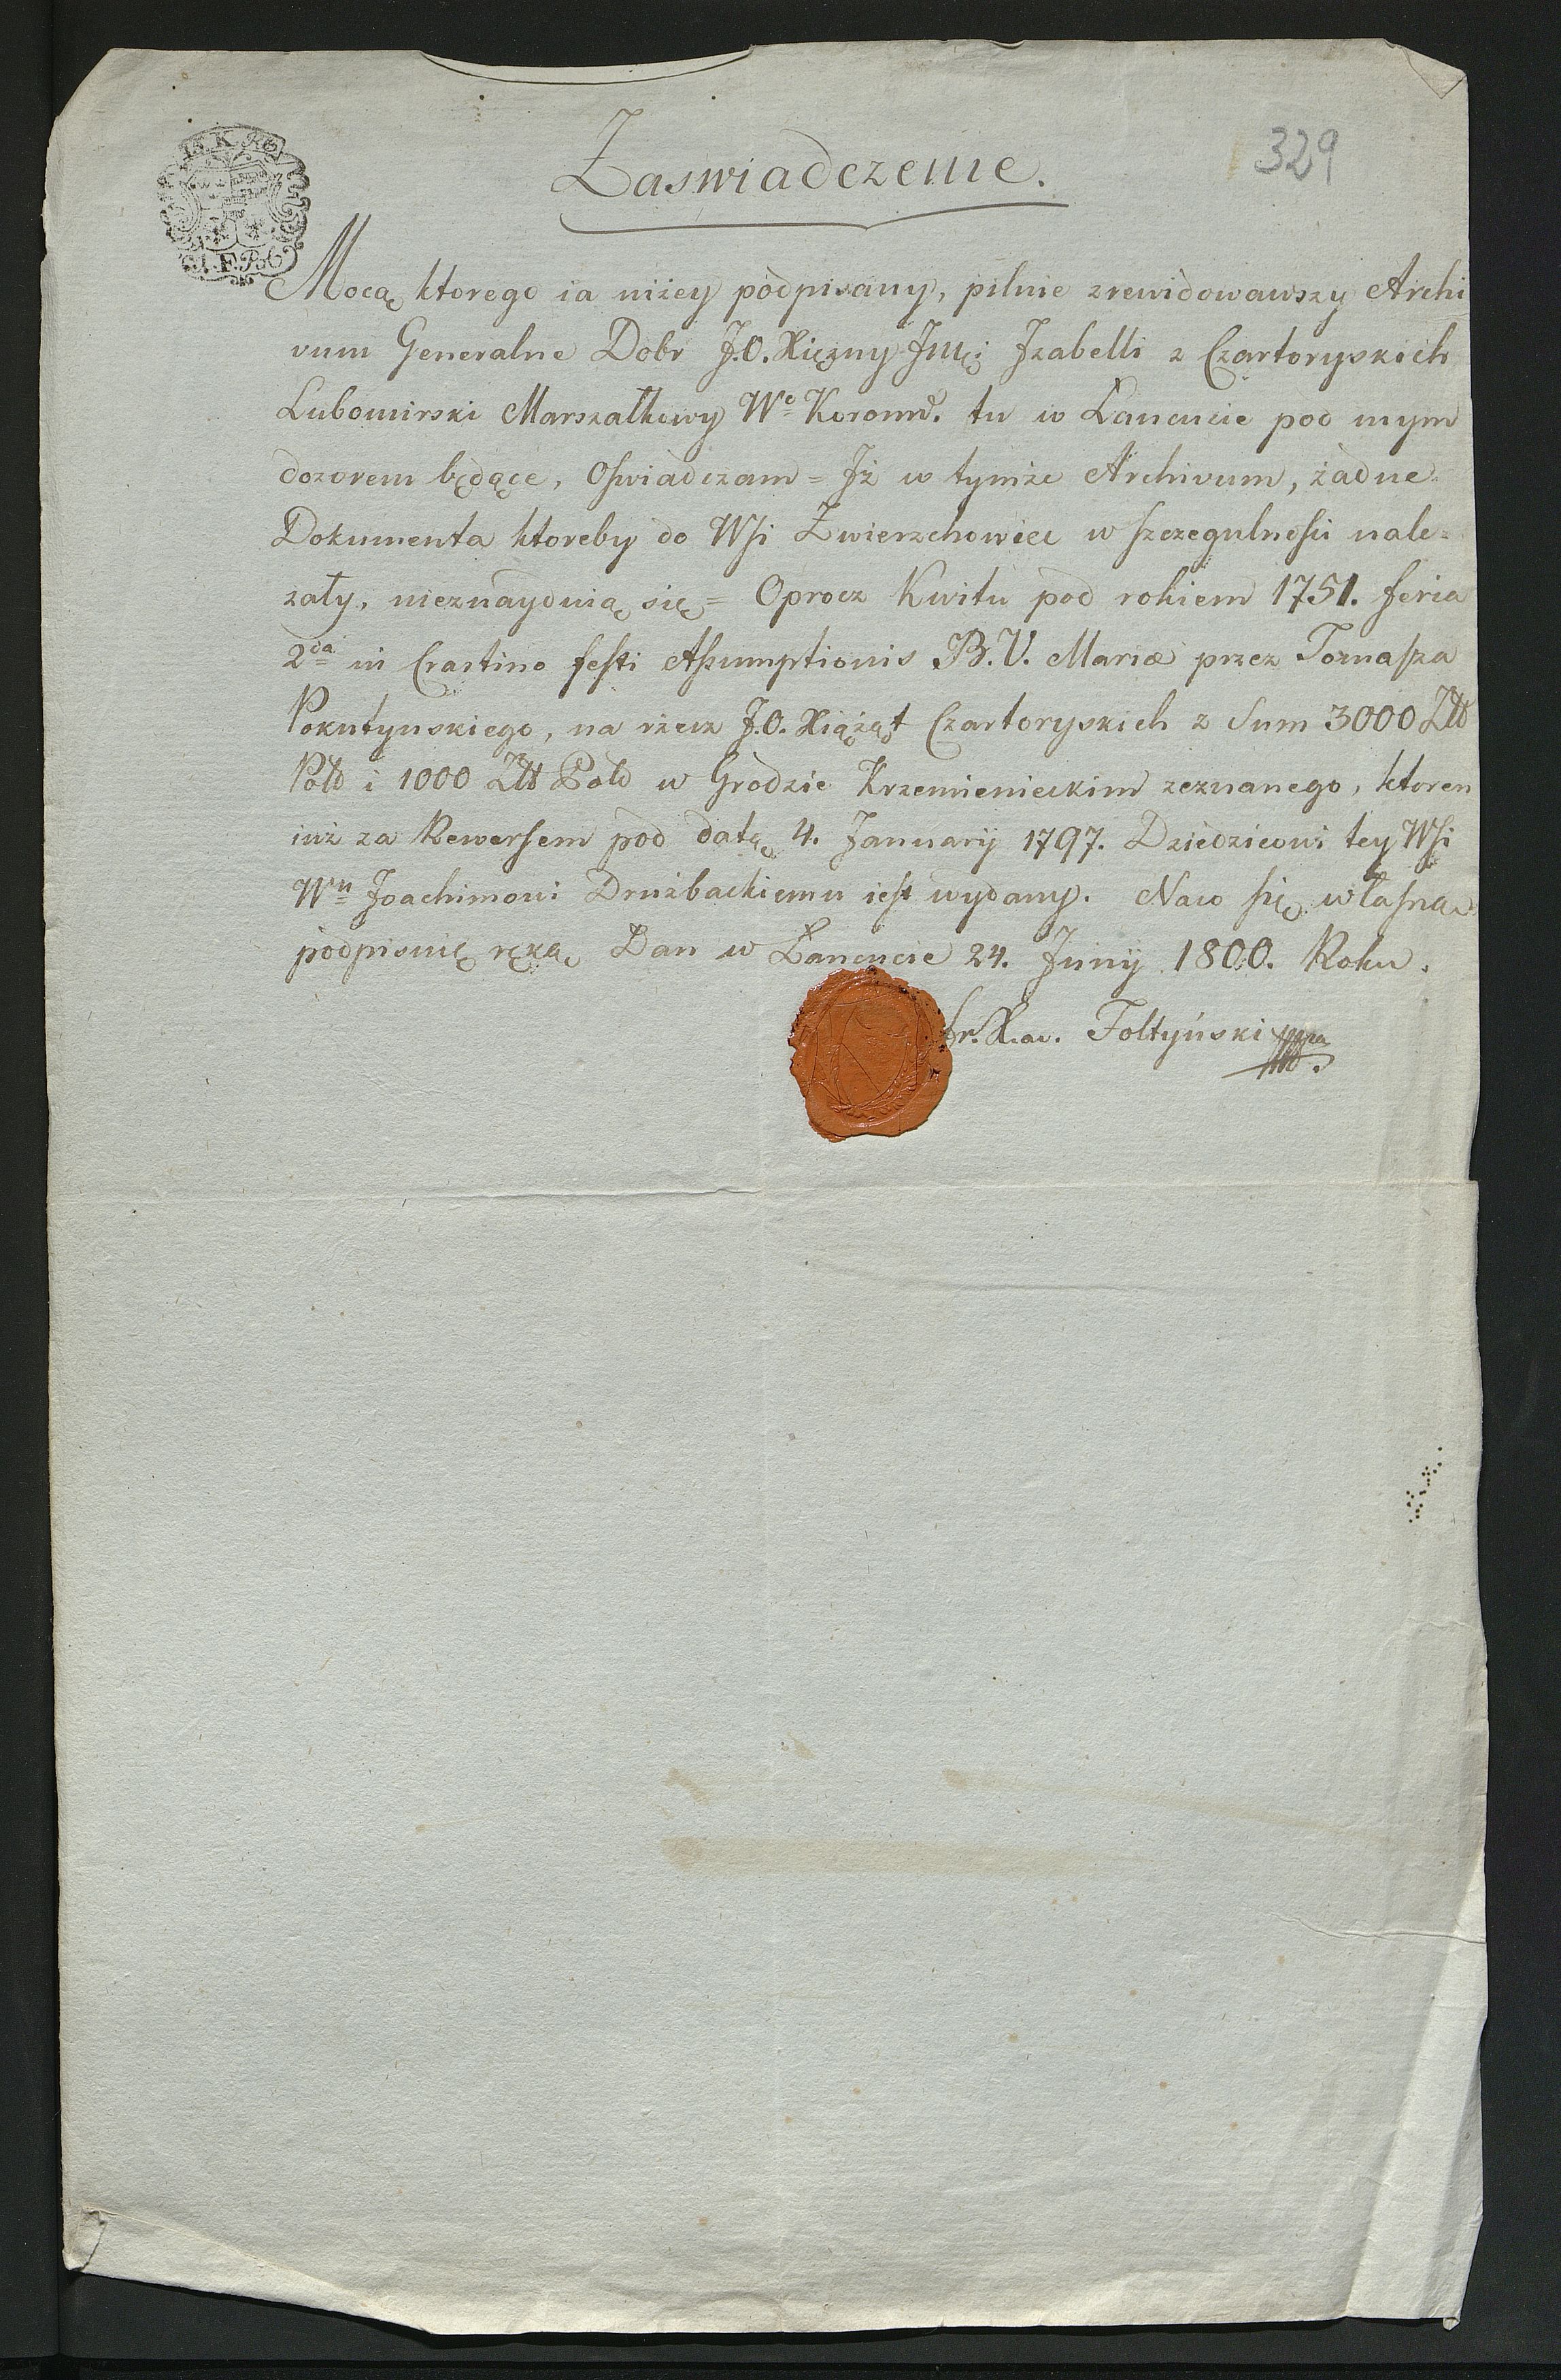 329
Zaswiadczenie.
Mocą ktorego ia niżey podpisany, pilnie zrewidowawszy Archi
vum Generalne Dobr J.O. Xiężny Jmci Jzabelli z Czartoryskich
Lubomirski Marszałkowy Wo Koronn. tu w Łancucie pod mym
dozorem będące, Oſwiadczam = Jż w tymże Archivum, żadne
Dokumenta ktoreby do Wſi Zwierzchowiec w ſzczegulnoſci nale=
żały, nieznayduią się = Oprocz Kwitu pod rokiem 1751. feria
2da in Crastino feſti Aſsumptionis B.V. Mariæ przez Tomaſza
Pokutynskiego, na rzecz J.O. Xiążąt Czartoryskich z Sum 3000 Złt
Pold i 1000 Złt Pold w Grodzie Krzemienieckim zeznanego, ktoren
iuż za Rewerſem pod datą 4. January 1797. Dziedzicowi tey Wſi
Wn Joachimowi Drużbackiemu ieſt wydany. Naco ſię właſną
podpisuię ręką, Dan w Łancucie 24. Junij 1800. Roku.
Fr. Xav. Foltyński mpra